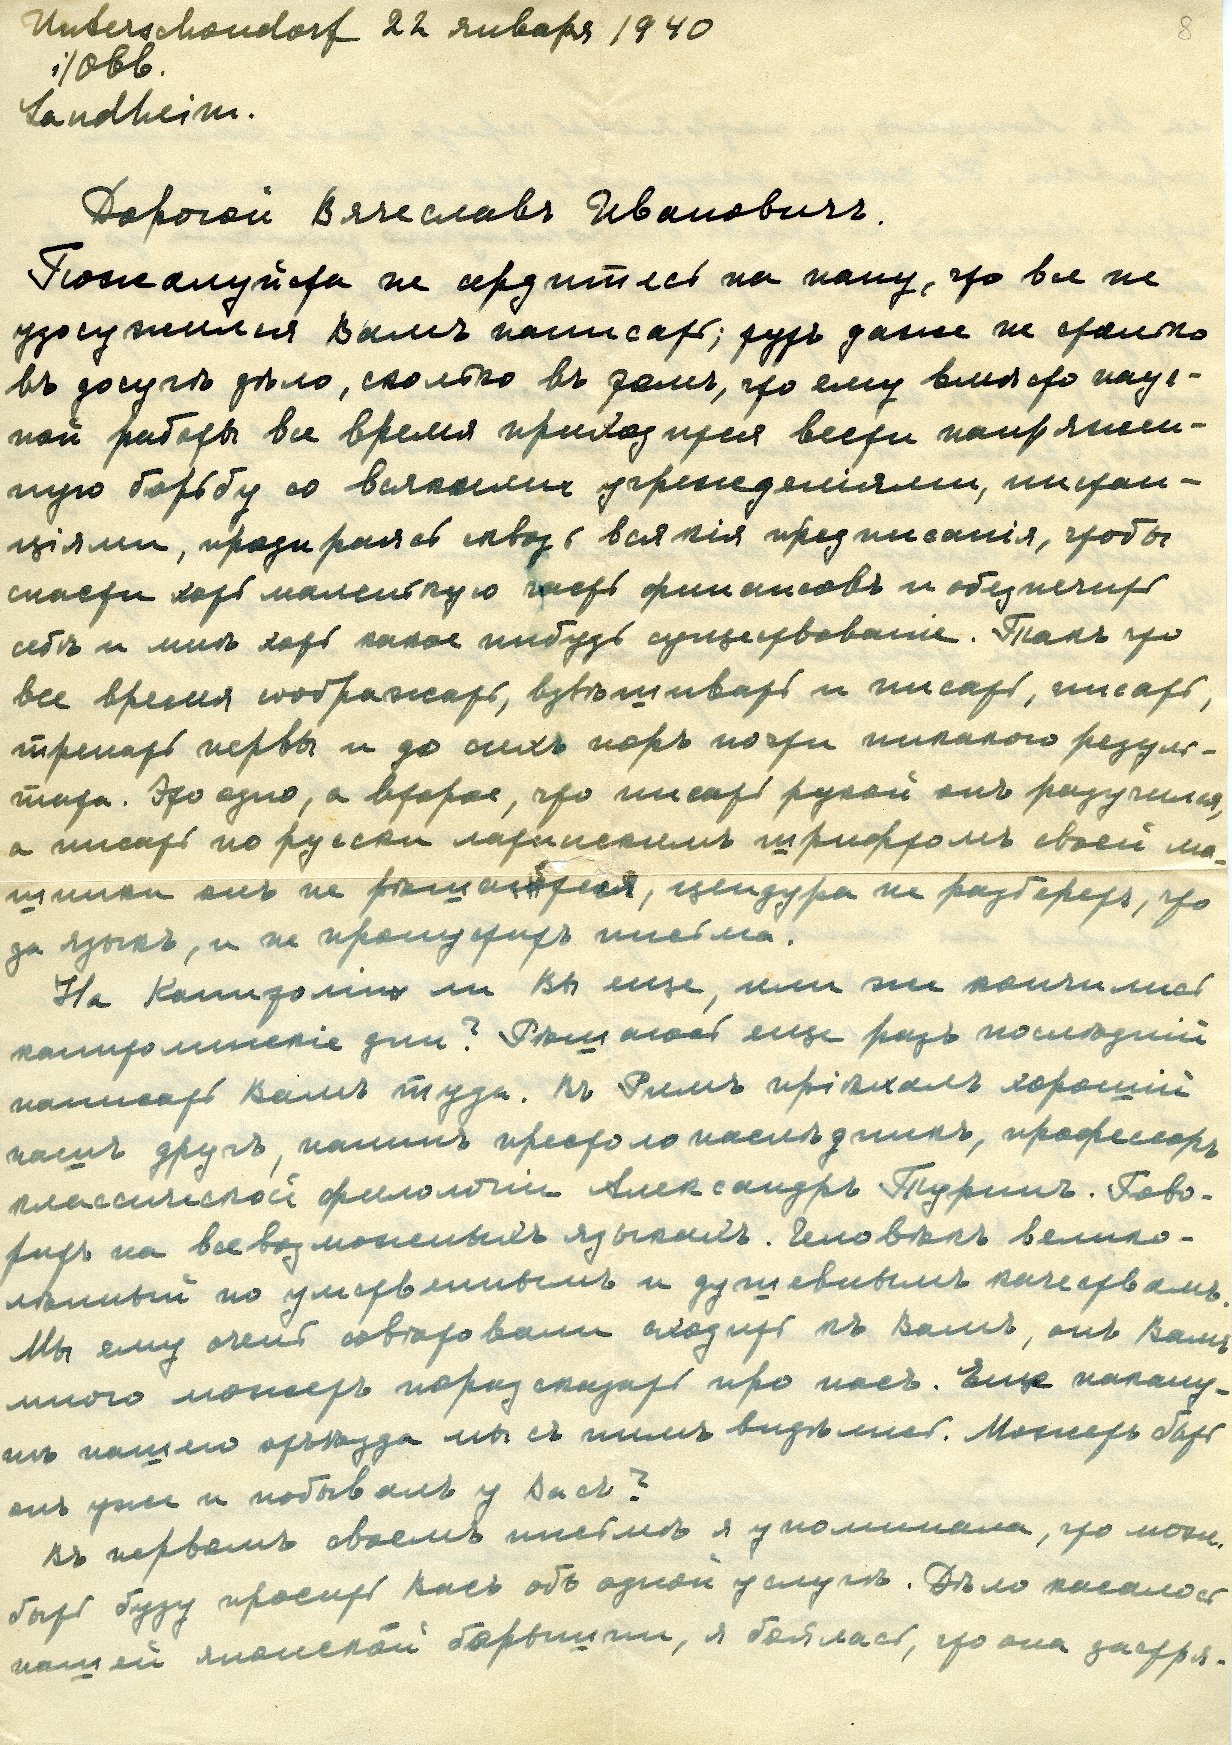 Unterschondorf 22 января 1940
8
i/Obb.
Landheim.
Дорогой Вячеславъ Ивановичъ.
Пожалуйста не сердитесь на папу, что все не
удосужился Вамъ написать; тутъ даже не столько
въ досугѣ дѣло, сколько въ томъ, что ему вмѣсто науч-
ной работы все время приходится вести напряжен-
ную борьбу со всякими учрежденіями, инстан-
ціями, продираясь сквозь всякія предписанія, чтобы
спасти хоть маленькую часть финансовъ и обезпечить
себѣ и мнѣ хоть какое нибудь существованіе. Такъ что
все время соображать, взвѣшивать и писать, писать,
трепать нервы и до сихъ поръ почти никакого резуль-
тата. Это одно, а второе, что писать рукой онъ разучился,
а писать по русски латинскимъ шрифтомъ своей ма-
шинки онъ не рѣшается, цензура не разберетъ, что
за языкъ, и не пропуститъ письма.
На Капитоліи ли Вы еще, или же кончились
капитолинскіе дни? Рѣшаюсь еще разъ послѣдній
написать Вамъ туда. Въ Римъ пріѣхалъ хорошій
нашъ другъ, папинъ престолонаслѣдникъ, профессоръ
классической филологіи Александръ Туринъ. Гово-
ритъ на всевозможныхъ языкахъ. Человѣкъ велико-
лѣпный по умственнымъ и душевнымъ качествамъ.
Мы ему очень совѣтовали сходить къ Вамъ, онъ Вамъ
много можетъ поразсказать про насъ. Еще накану-
нѣ нашего отъѣзда мы съ нимъ видѣлись. Можетъ быть
онъ уже и побывалъ у Васъ?
Въ первомъ своемъ письмѣ я упоминала, что мож.
быть буду просить Васъ объ одной услугѣ. Дѣло касалось
нашей японской барышни, я боялась, что она застря-